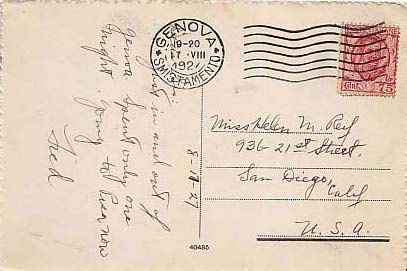 GENOVA
19-20
17 · VIII
1927
SMISTAMENTO
CENT. 75
Just in and out of
Genoa spent only one
night. Going to Pisa now
Fed
8-17-27
Miss Helen M. Rey
936 21st Street,
San Diego,
Calif
U.S.A.
40485